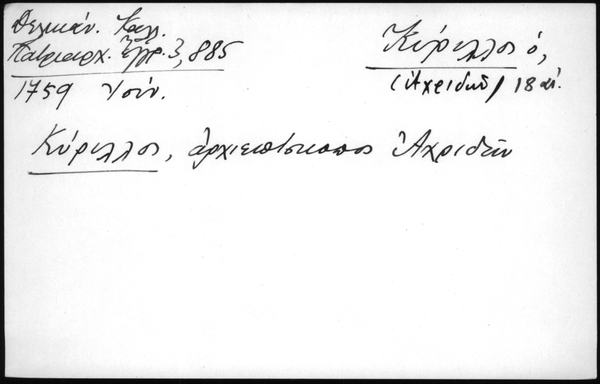 Δελικάν. Καλ.
Πατριαρχ. Ἔγγρ. 3, 885
1759 Ἰούν.
Κύριλλος ὁ,
(Ἀχριδῶν) 18 αἰ.
Κύριλλος, ἀρχιεπίσκοπος Ἀχριδῶν